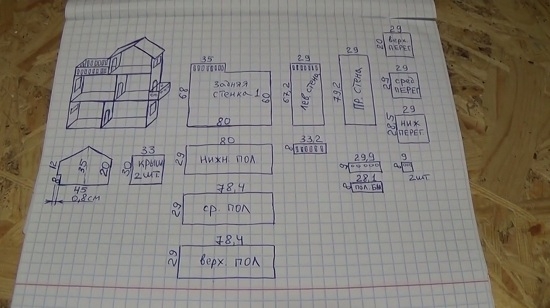 35
68
Задняя
стенка 1
60
80
29
67,2
лев стена
29
79,2
ПР. СТЕНА
29
20
верх
ПЕРЕГ
29
29
сред
ПЕРЕГ
29
28,5
НИЖ
ПЕРЕГ
12
35
20
8
45
0,8см
33
30
КРЫШ
2 ШТ
80
29
НИЖН ПОЛ
33,2
9
29,9
9
28,1
ПОЛ. БМ
9
2шт
78,4
29
ср. ПОЛ
78,4
29
верх. ПОЛ